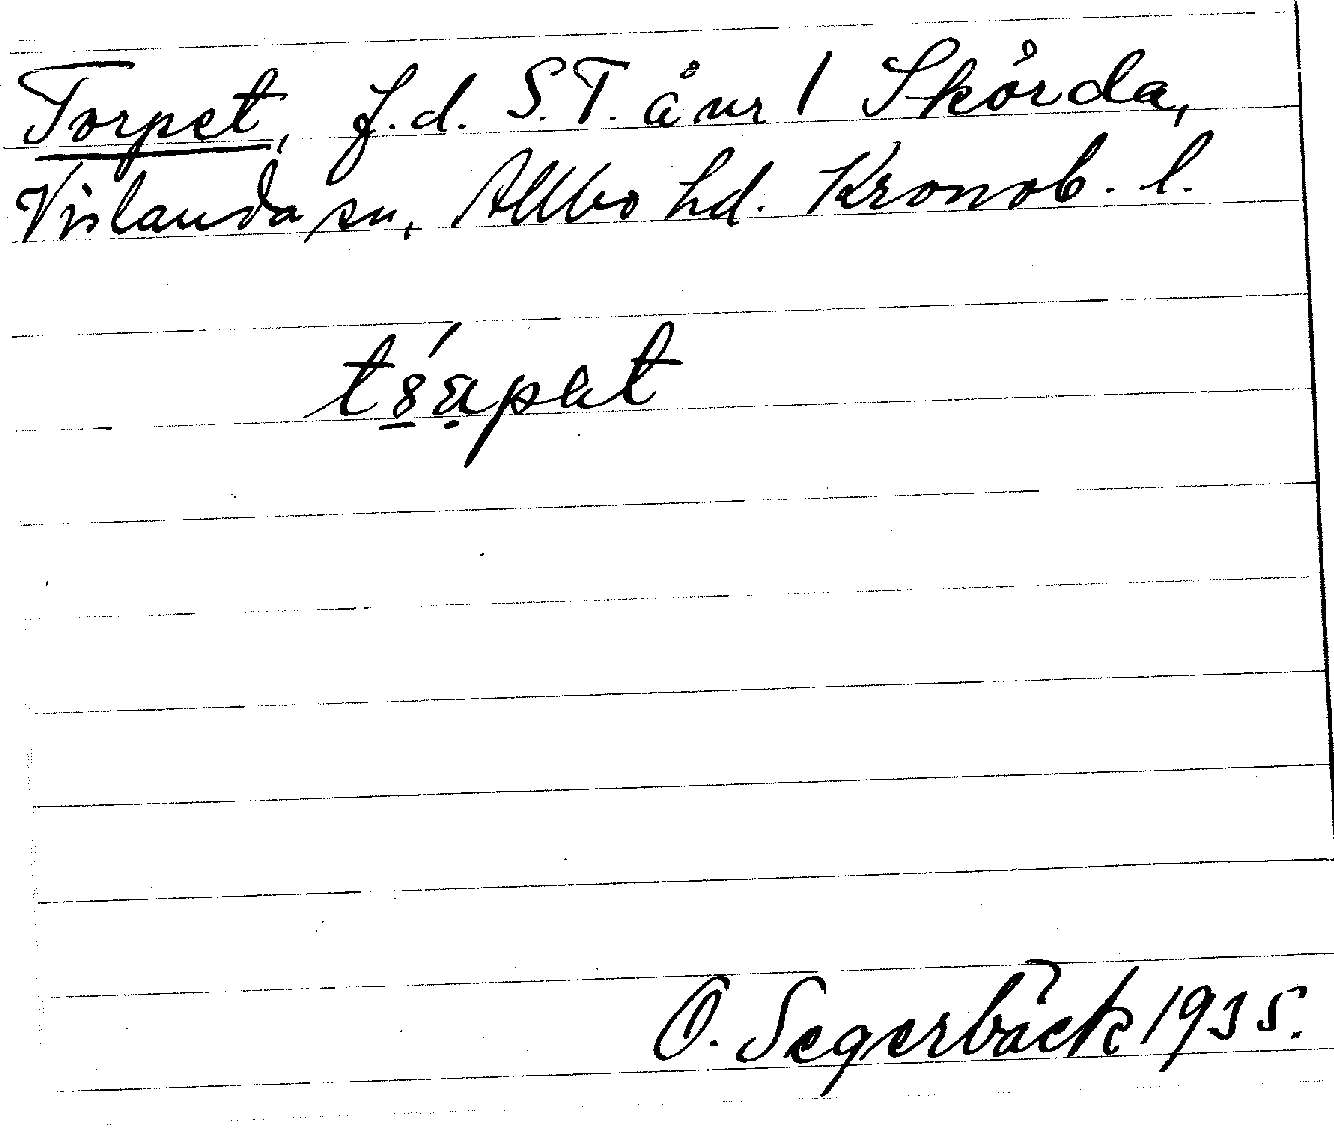 Torpet, f.d. S.T. å nr 1 Skörda,
Vislanda sn, Allbo hd. Kronob. l.
O. Segerbäck 1935.